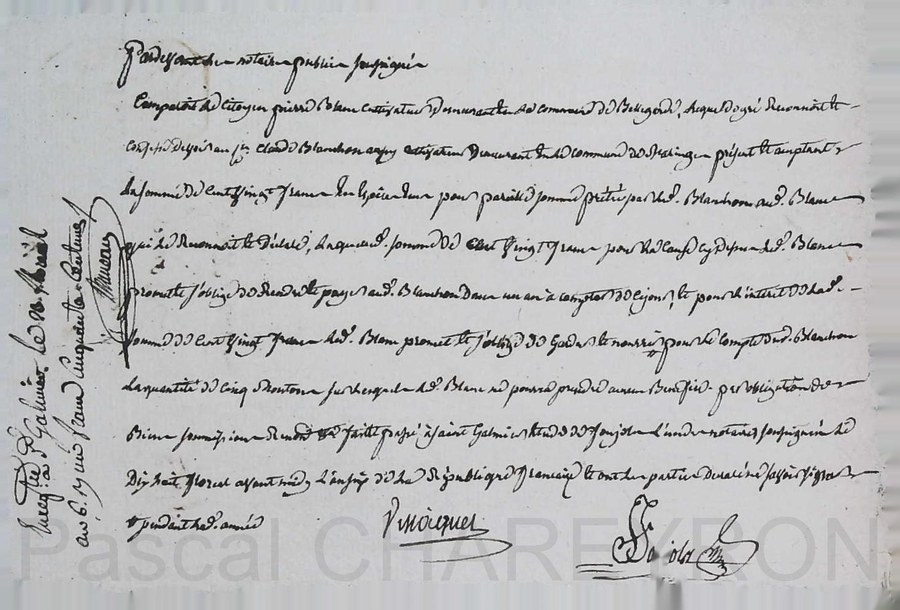 Pardevant les notaires publics soussignés
Comparoit le Citoyen pierre Blanc Cultivateur demeurant en la Commune de Bellegarde, lequel de gré Reconnoit et
Confesse devoir au Cen. Claude Blanchon aussy Cultivateur Demeurant en la Commune de présent et acceptant
la somme de Cent vingt francs En Espèces pour pareille somme prêtée par led. Blanchon aud. Blanc
qui le Reconnoit et déclare, laquelle d. somme de Cent vingt francs pour la Cause cy dessus led. Blanc
promet et s'oblige de Rendre et payer aud. Blanchon dans un an à compter de Ce jour, et pour l'intérêt de lad.
somme de Cent vingt francs led. Blanc promet et s'oblige de Garder et nourrir # pour le Compte dud. Blanchon
la quantité de Cinq moutons sur lesquels led. Blanc ne pourra prendre aucun Bénéfice. par obligation de
Biens soumissions Renonc. fait et passé à saint Galmier Etude de Joujole l'un des notaires soussignés le
Dix huit floreal avant midy l'an six de la République française et ont les parties déclaré ne savoir signer
# pendant lad. année
Pascal CHAREYRON
Enregistré à St Galmier le 20 floréal
an 6. un franc cinquante Centimes